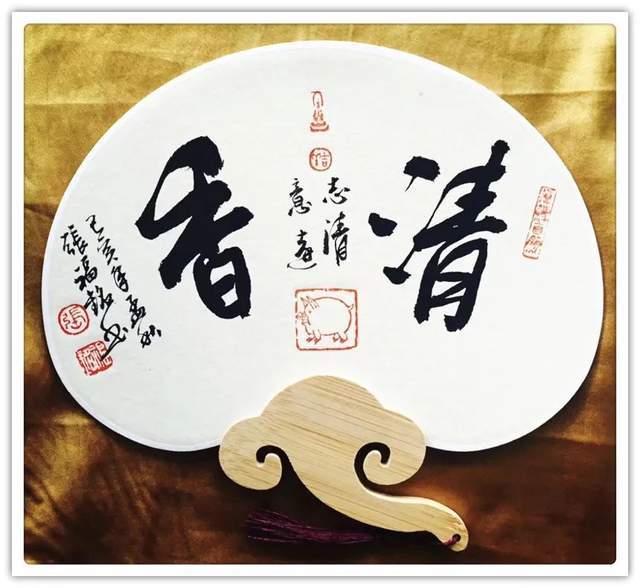 清
志清
意遠
香
己亥年孟秋
張福銘书
張